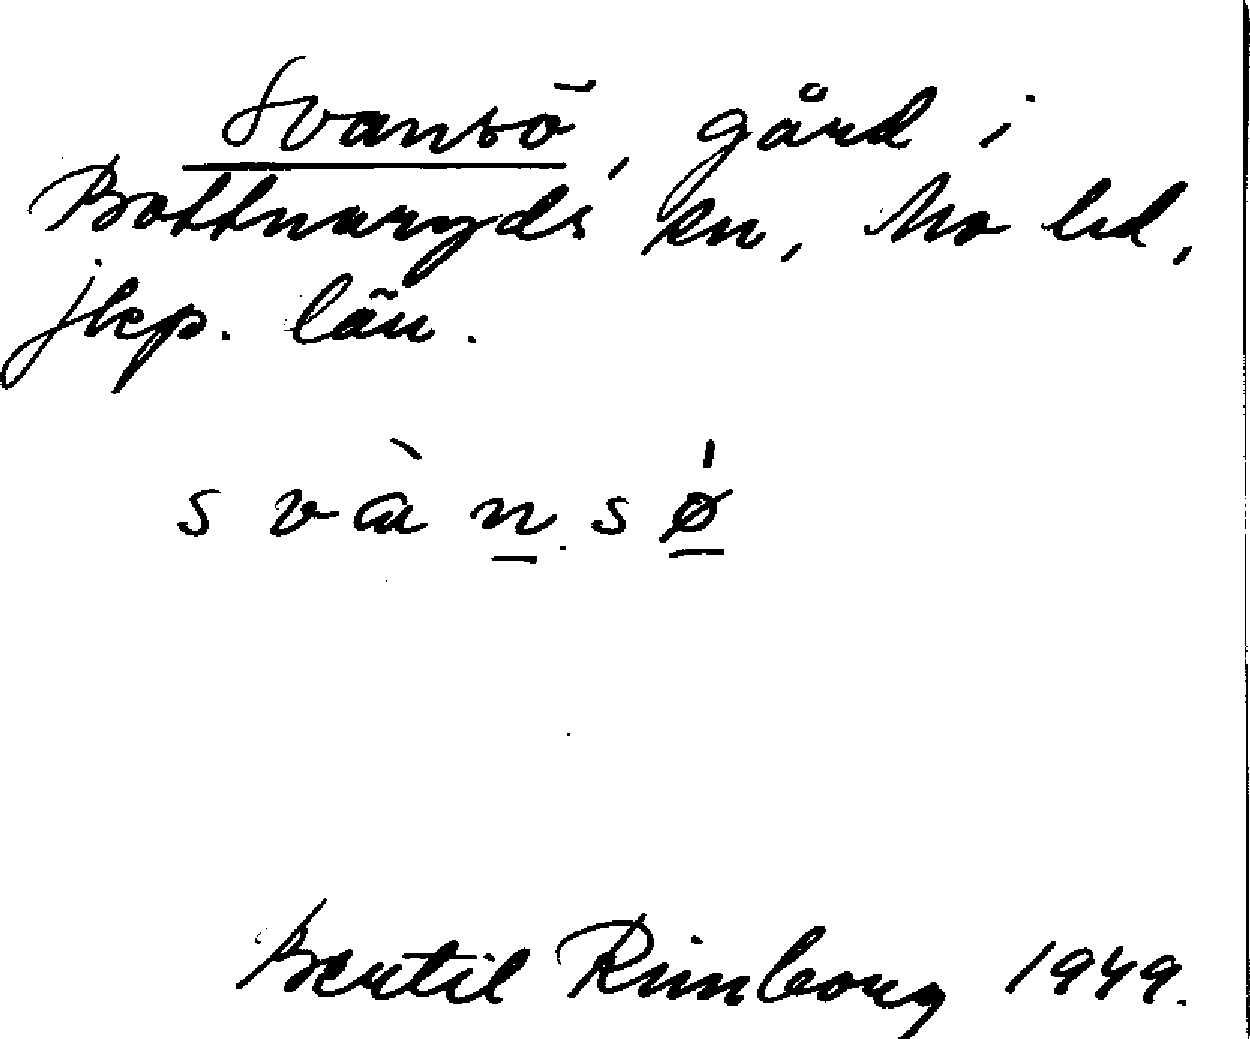 Svansö, gård i
Bottnaryds sn, Mo hd,
jkp. län.
s v à n s ø̍
Bertil Rimborg 1949.